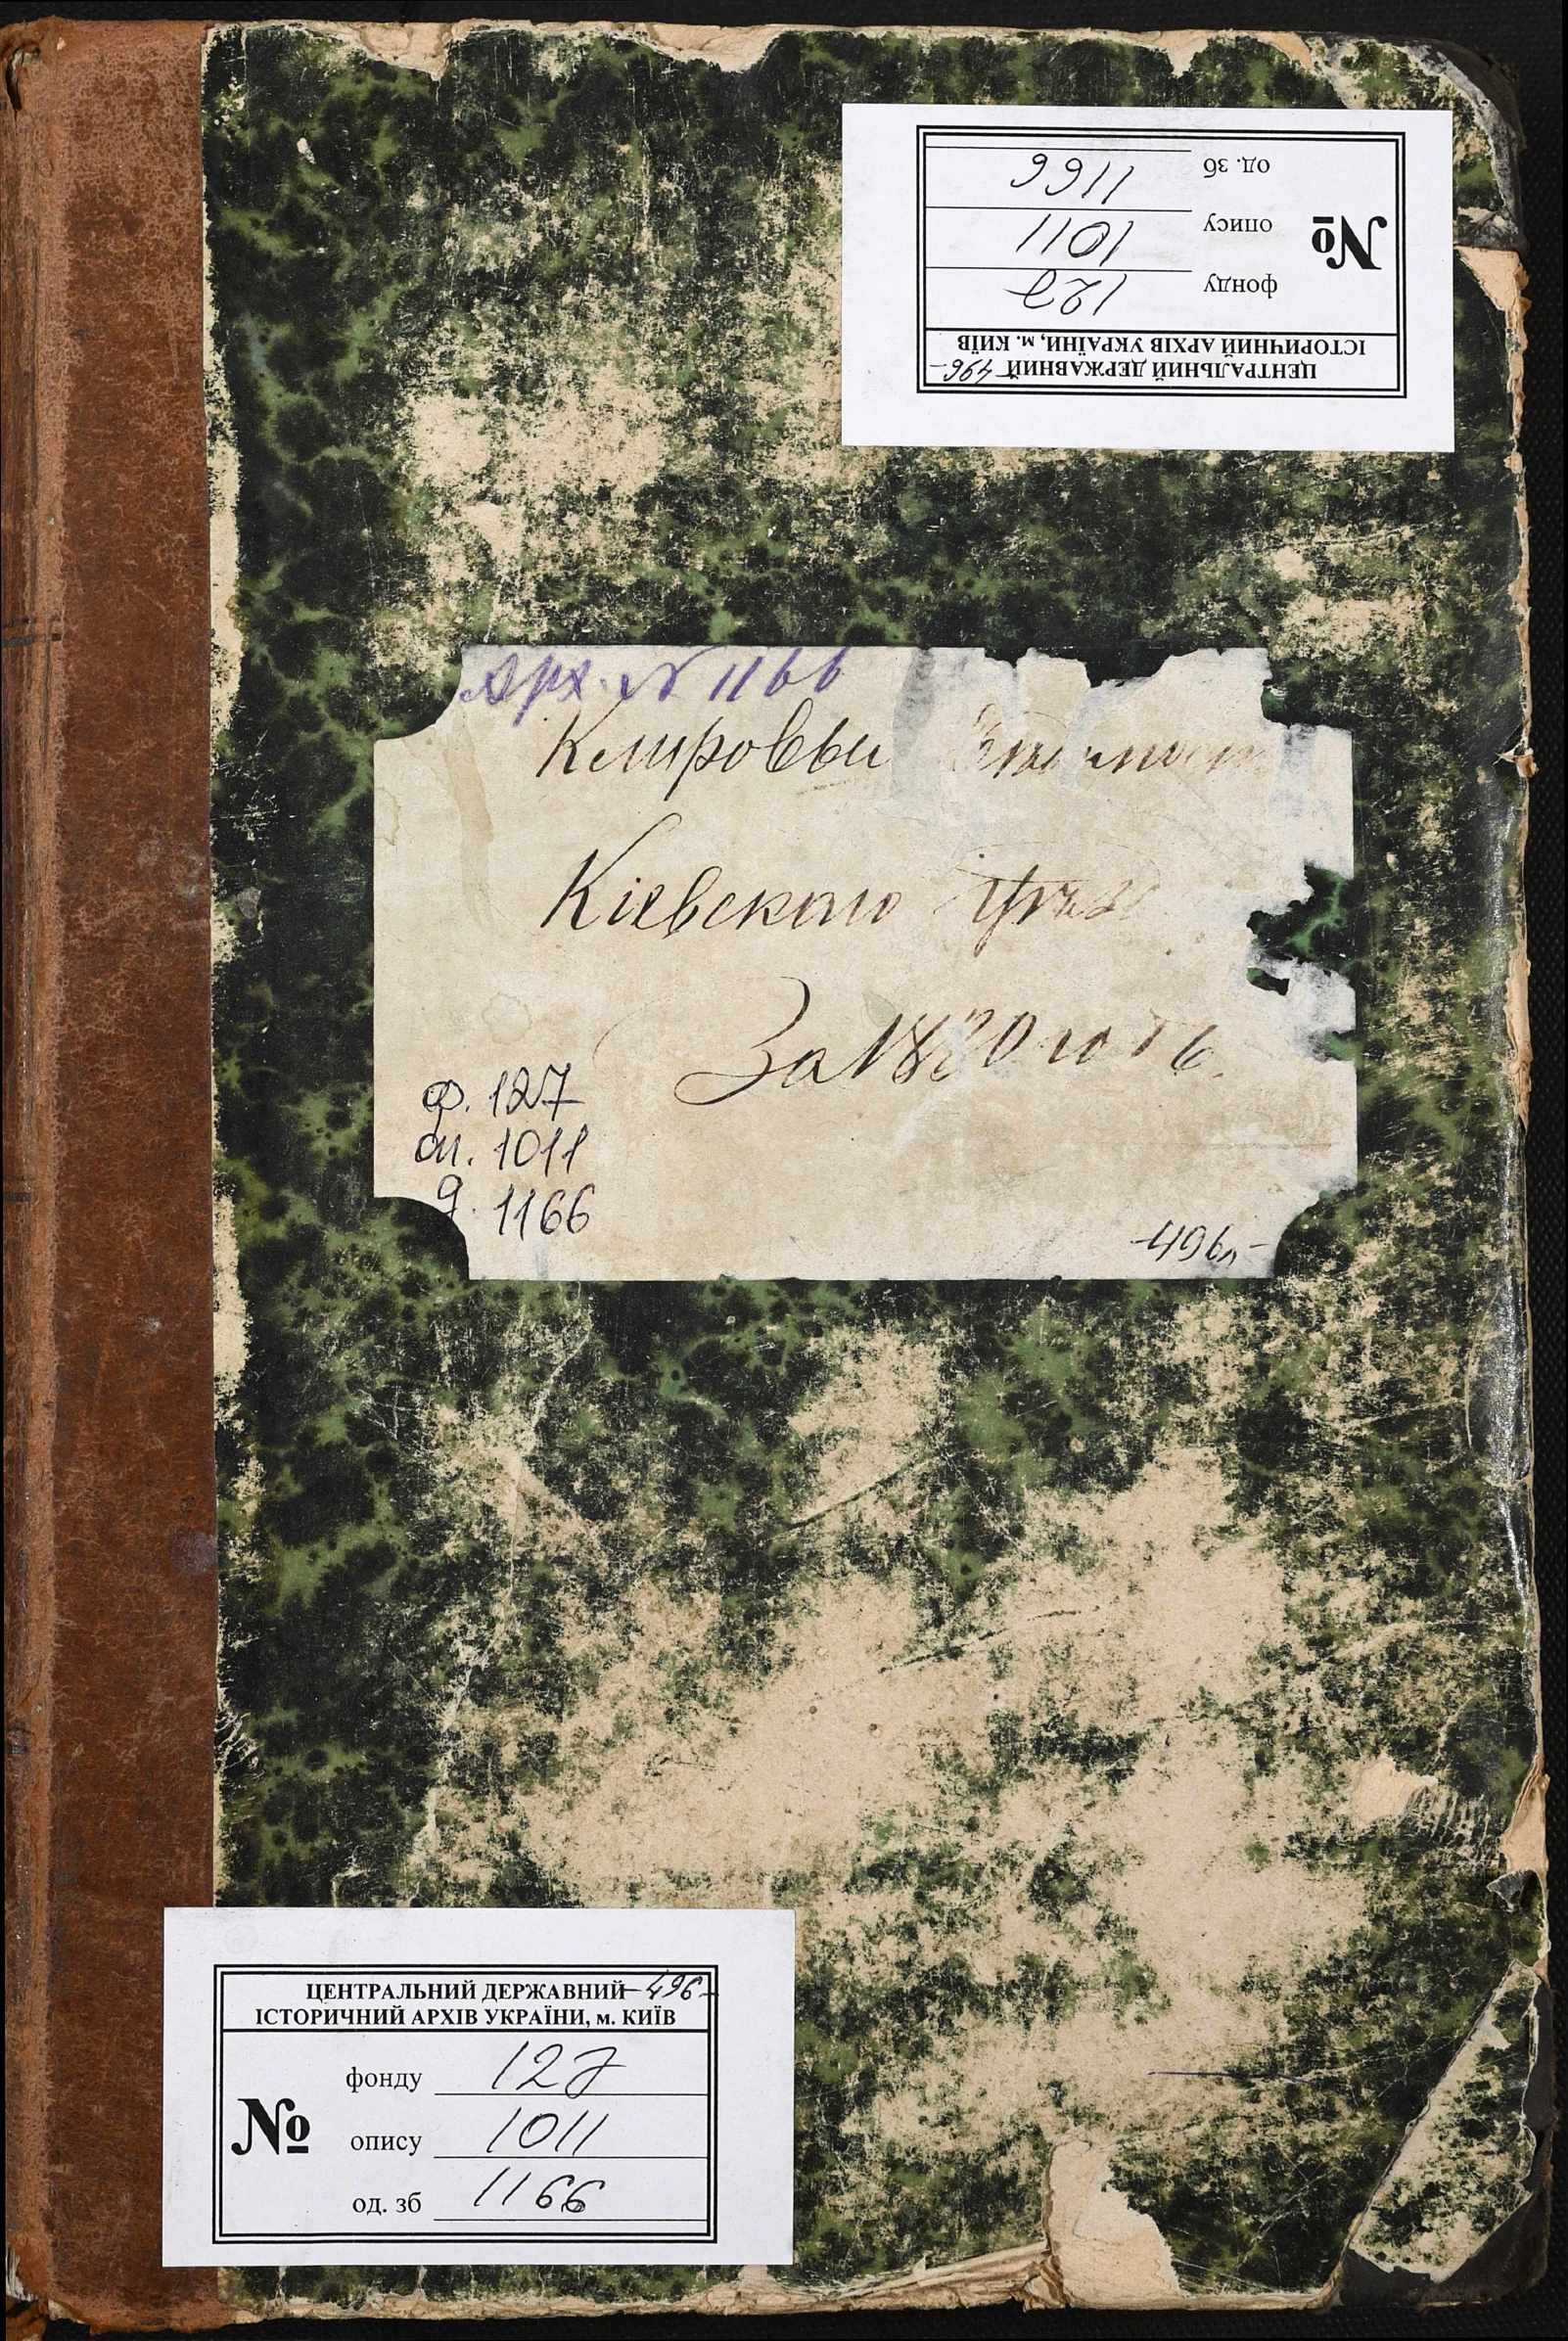 ЦЕНТРАЛЬНИЙ ДЕРЖАВНИЙ -496-
ІСТОРИЧНИЙ АРХІВ УКРАЇНИ, м. КИЇВ
№
фонду 127
опису 1011
од. зб 1166
Арх. № 1166
Клировыи
Кіевскаго
За
ф. 127
оп. 1011
д. 1166
-496л-
ЦЕНТРАЛЬНИЙ ДЕРЖАВНИЙ -496-
ІСТОРИЧНИЙ АРХІВ УКРАЇНИ, м. КИЇВ
№
фонду 127
опису 1011
од. зб 1166